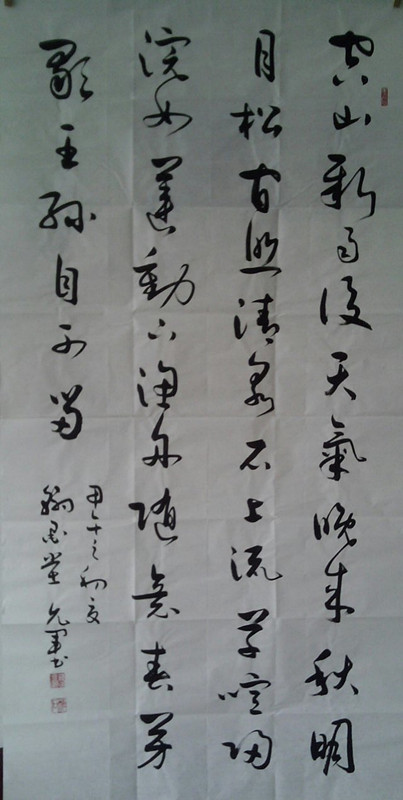 空山新雨後天氣晚來秋明
月松間照清泉石上流竹喧歸
浣女蓮動下漁舟隨意春芳
歇王孫自可留
初夏
翰墨堂